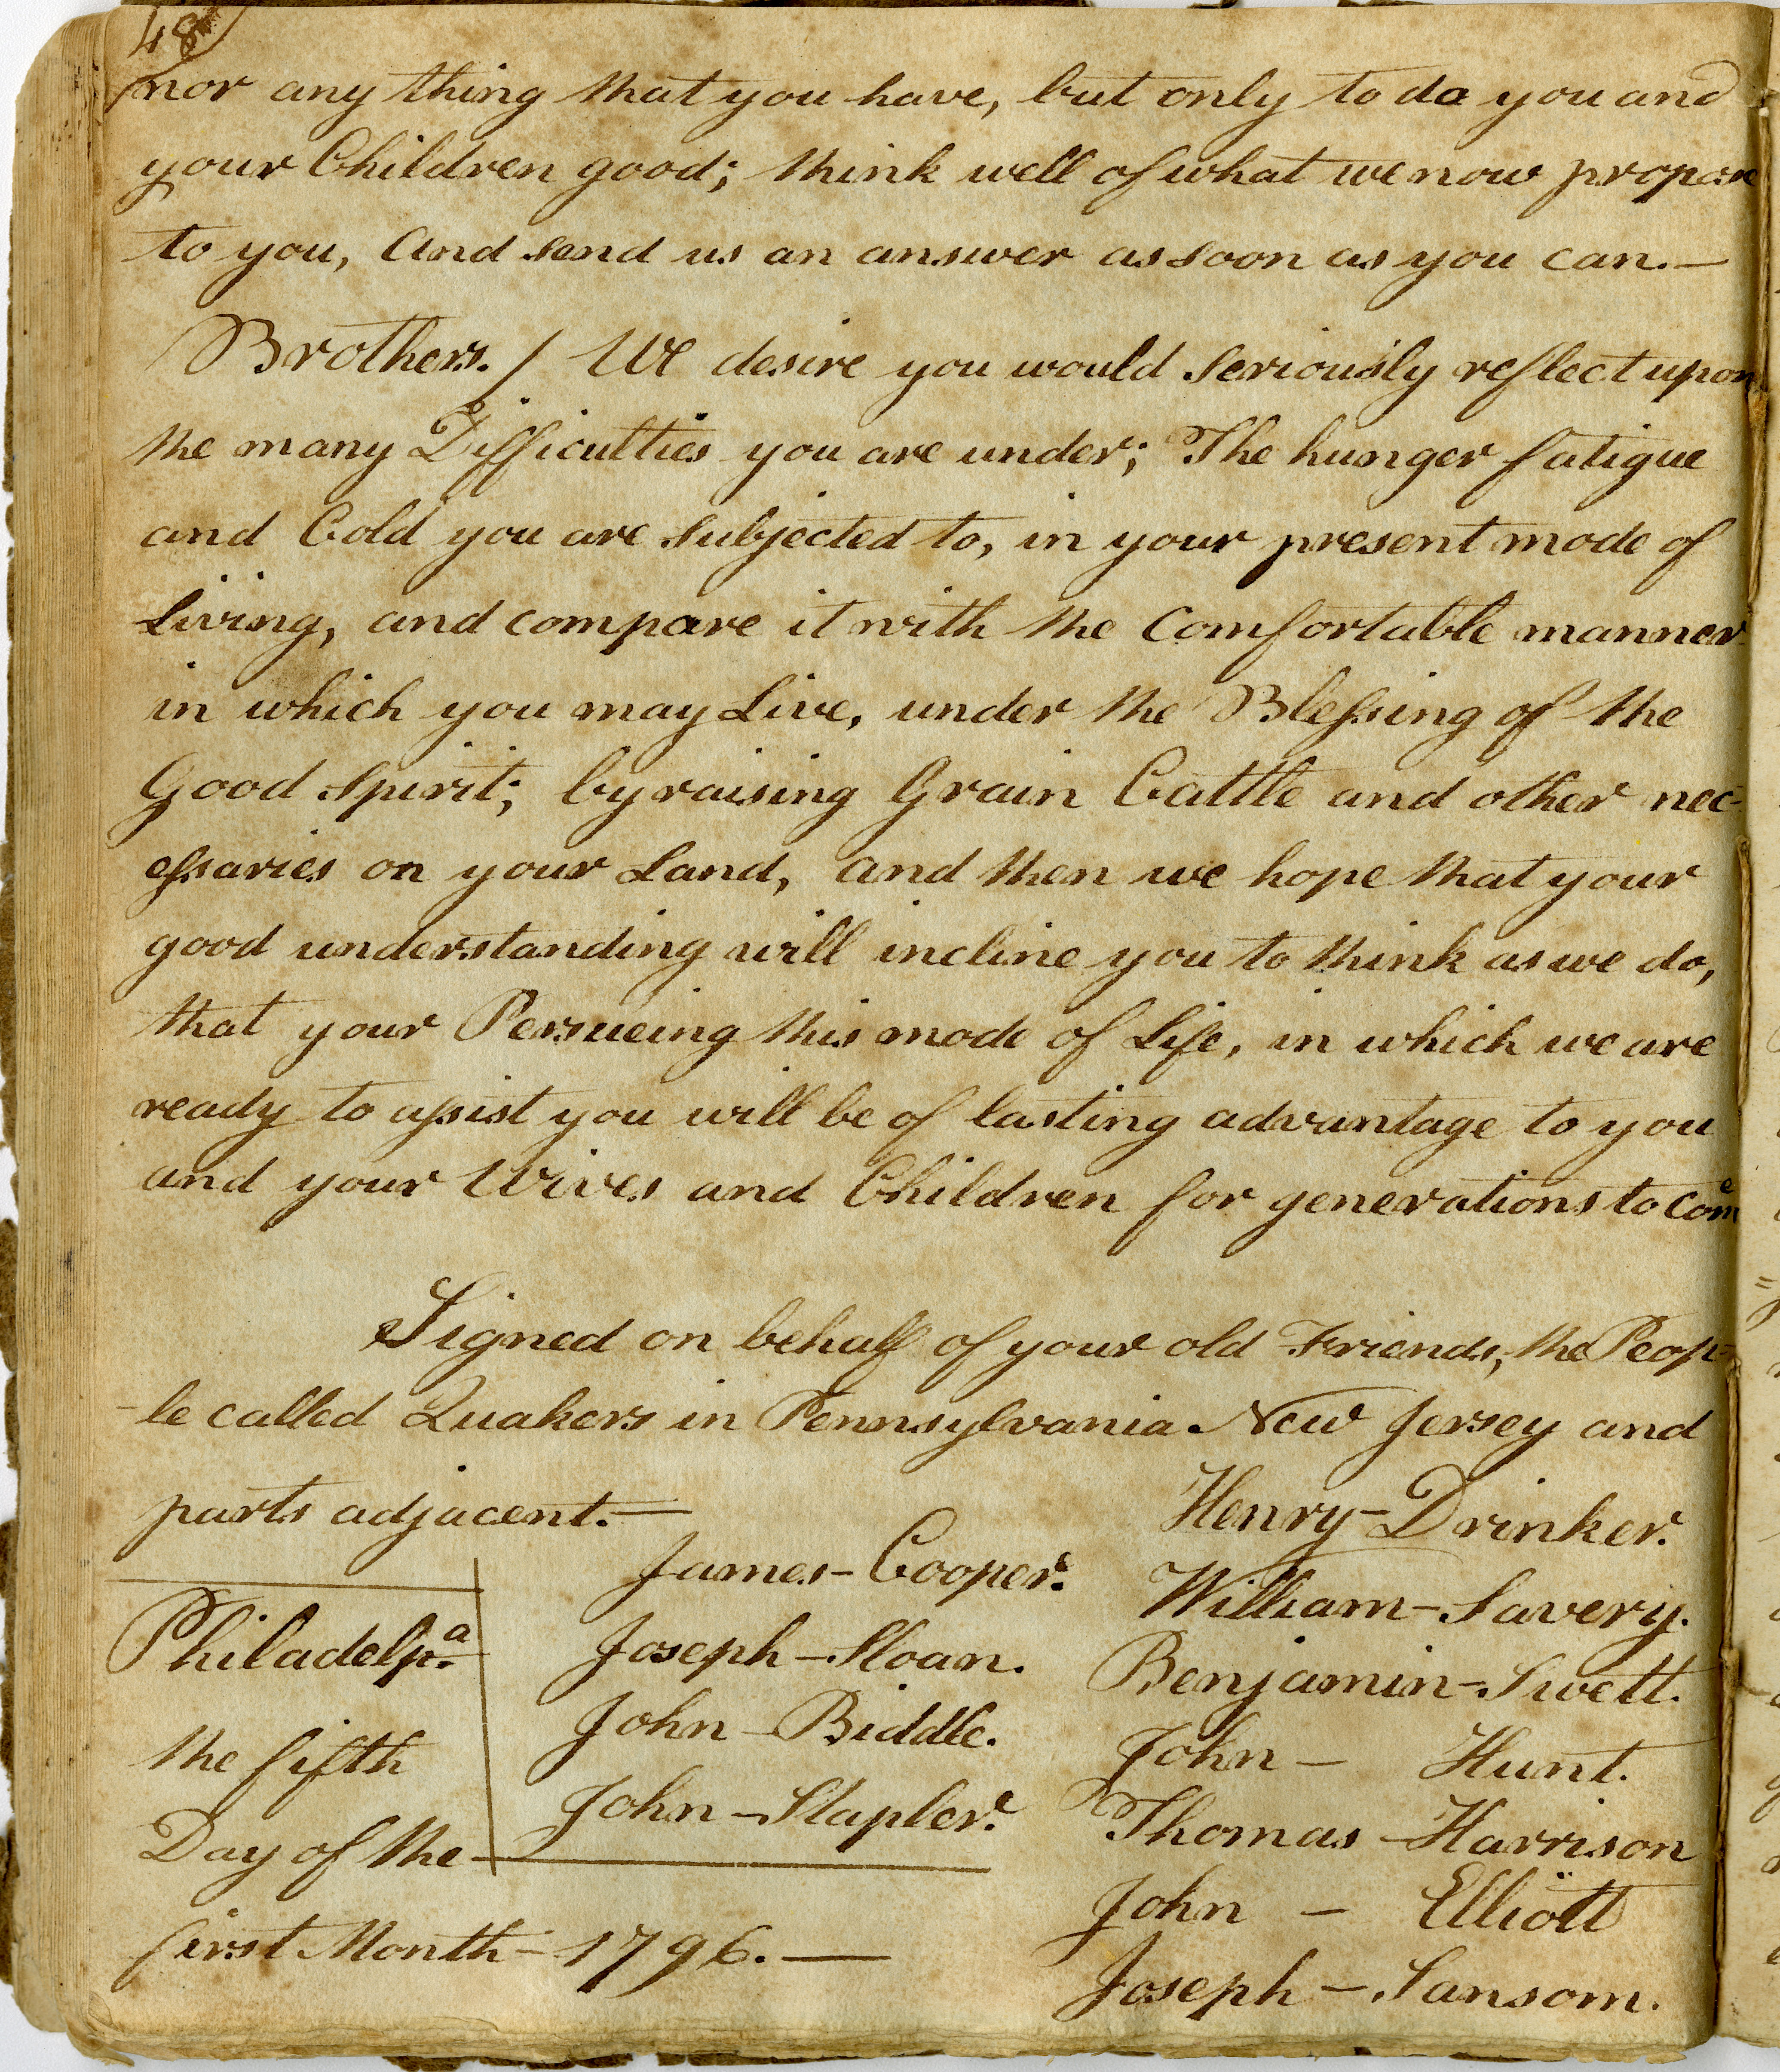 48
nor any thing that you have, but only to do you and
your Children good; think well of what we now propose
to you, And send us an answer as soon as you can.—
Brothers. / We desire you would Seriously reflect upon
the many Difficulties you are under; The hunger fatigue
and Cold you are Subjected to, in your present mode of
Living, and compare it with the Comfortable manner
in which you may Live, under the Blessing of the
Good Spirit; by raising Grain Cattle and other nec-
essaries on your Land, and then we hope that your
good understanding will incline you to think as we do,
that your Persueing this mode of Life, in which we are
ready to assist you will be of lasting advantage to you
and your Wives and Children for generations to Come
Signed on behalf of your old Friends, the Peop-
-le called Quakers in Pennsylvania New Jersey and
parts adjacent.—
Philadelp.a
the fifth
Day of the —
first Month — 1796. —
James - Cooper.
Joseph - Sloan.
John - Biddle.
John - Stapler.
Henry - Drinker.
William - Savery.
Benjamin - Swett.
John - Hunt.
Thomas - Harrison
John - Elliott
Joseph - Sansom.